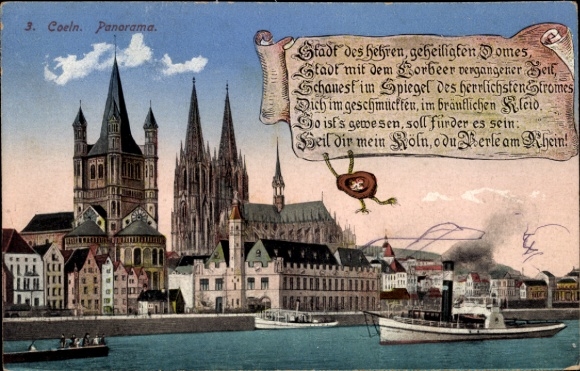 3. Coeln. Panorama.
Stadt des hehren, geheiligten Domes,
Stadt mit dem Lorbeer vergangener Zeit,
Schauest im Spiegel des herrlichsten Stromes
Dich im geschmückten, im bräutlichen Kleid.
So ist's gewesen, soll fürder es sein:
Heil dir mein Köln, o du Perle am Rhein!